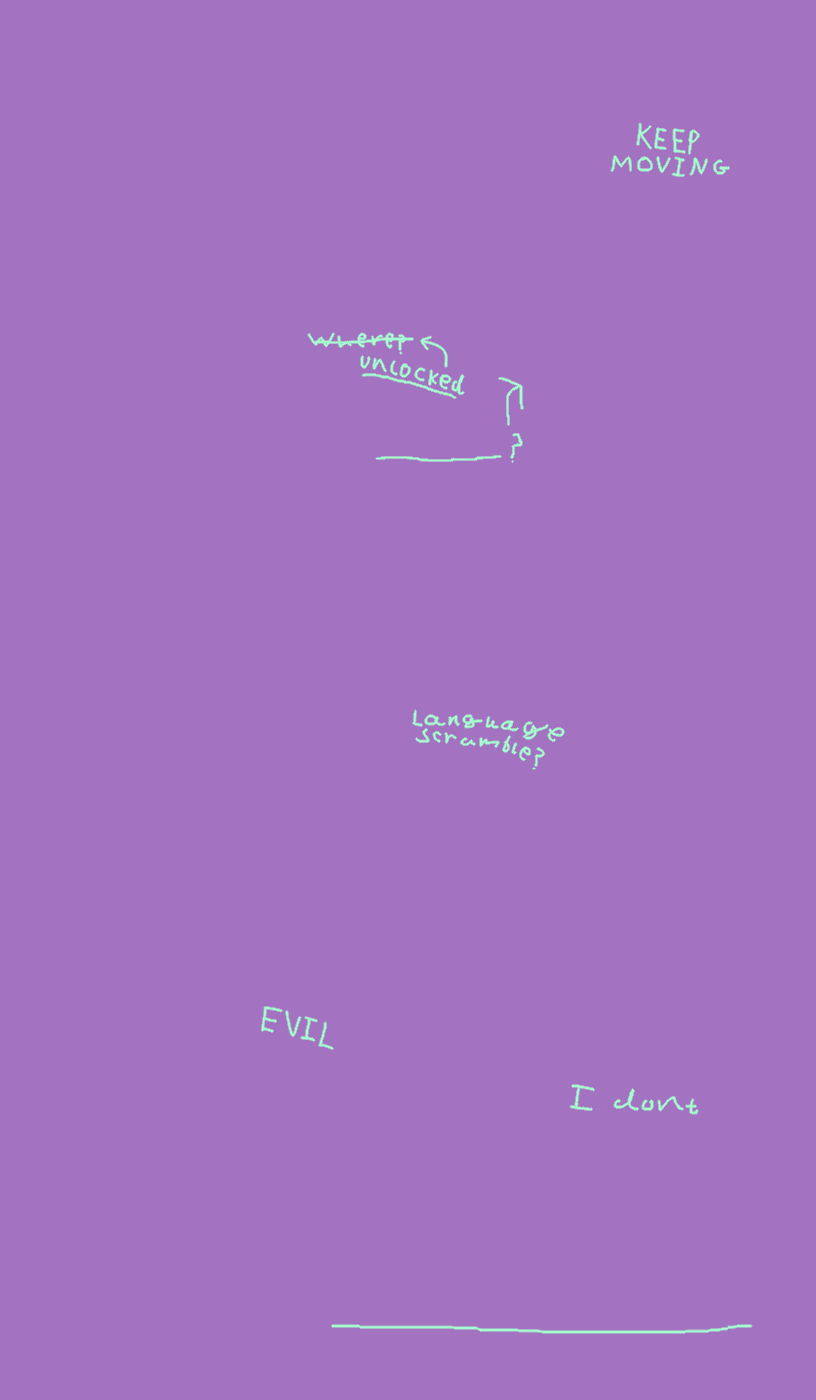 KEEP
MOVING
Where?
unlocked
?
Language
scramble?
EVIL
I dont